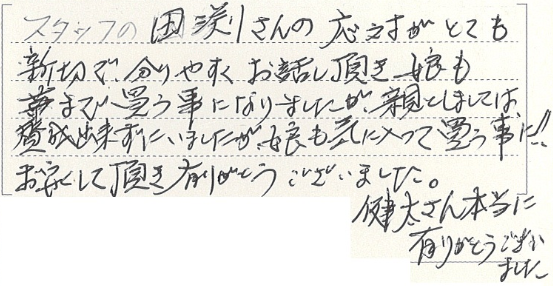 スタッフの田渕さんの応対がとても
新切で、分りやすくお話し頂き娘も
車まで買う事になりましたが、親としましては、
賛成出来ずにいましたが、娘も気に入って買う事に!!
お安くして頂き有りがとうございました。
健太さん本当に
有りがとうござい
ました